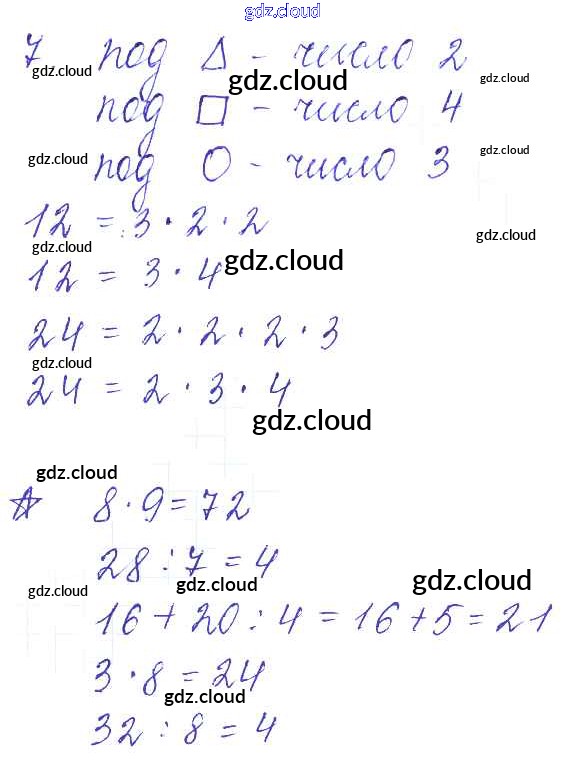 gdz.cloud
7 под △ - число 2
gdz.cloud gdz.cloud gdz.cloud
под □ - число 4
gdz.cloud gdz.cloud
под O - число 3
12 = 3 · 2 · 2
gdz.cloud gdz.cloud
12 = 3 · 4
gdz.cloud
24 = 2 · 2 · 2 · 3
gdz.cloud
24 = 2 · 3 · 4
gdz.cloud
gdz.cloud
☆ 8 · 9 = 72
28 : 7 = 4
gdz.cloud gdz.cloud gdz.cloud
16 + 20 : 4 = 16 + 5 = 21
3 · 8 = 24
gdz.cloud
32 : 8 = 4